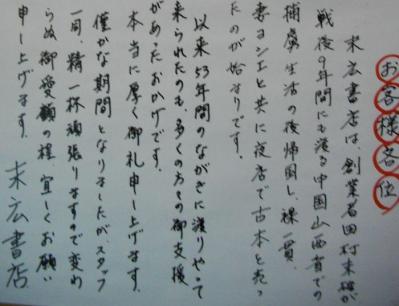 お客様各位
末広書店は、創業者田村末徳が
戦後9年間にも渡る中国山西省での
捕虜生活の後帰国し、裸一貫
妻ヨシエと共に夜店で古本を売っ
たのが始まりです。
以来53年間のながきに渡りやって
来られたのも、多くの方々の御支援
があったおかげです。
本当に厚く御礼申し上げます。
僅かな期間となりましたが、スタッフ
一同、精一杯頑張りますので変わ
らぬ御愛顧の程、宜しくお願い
申し上げます。
末広書店